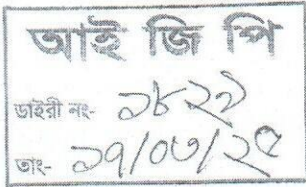 আই জি পি
ডাইরী নং- ১৮২১
তাং- ১৭/০৩/২৫